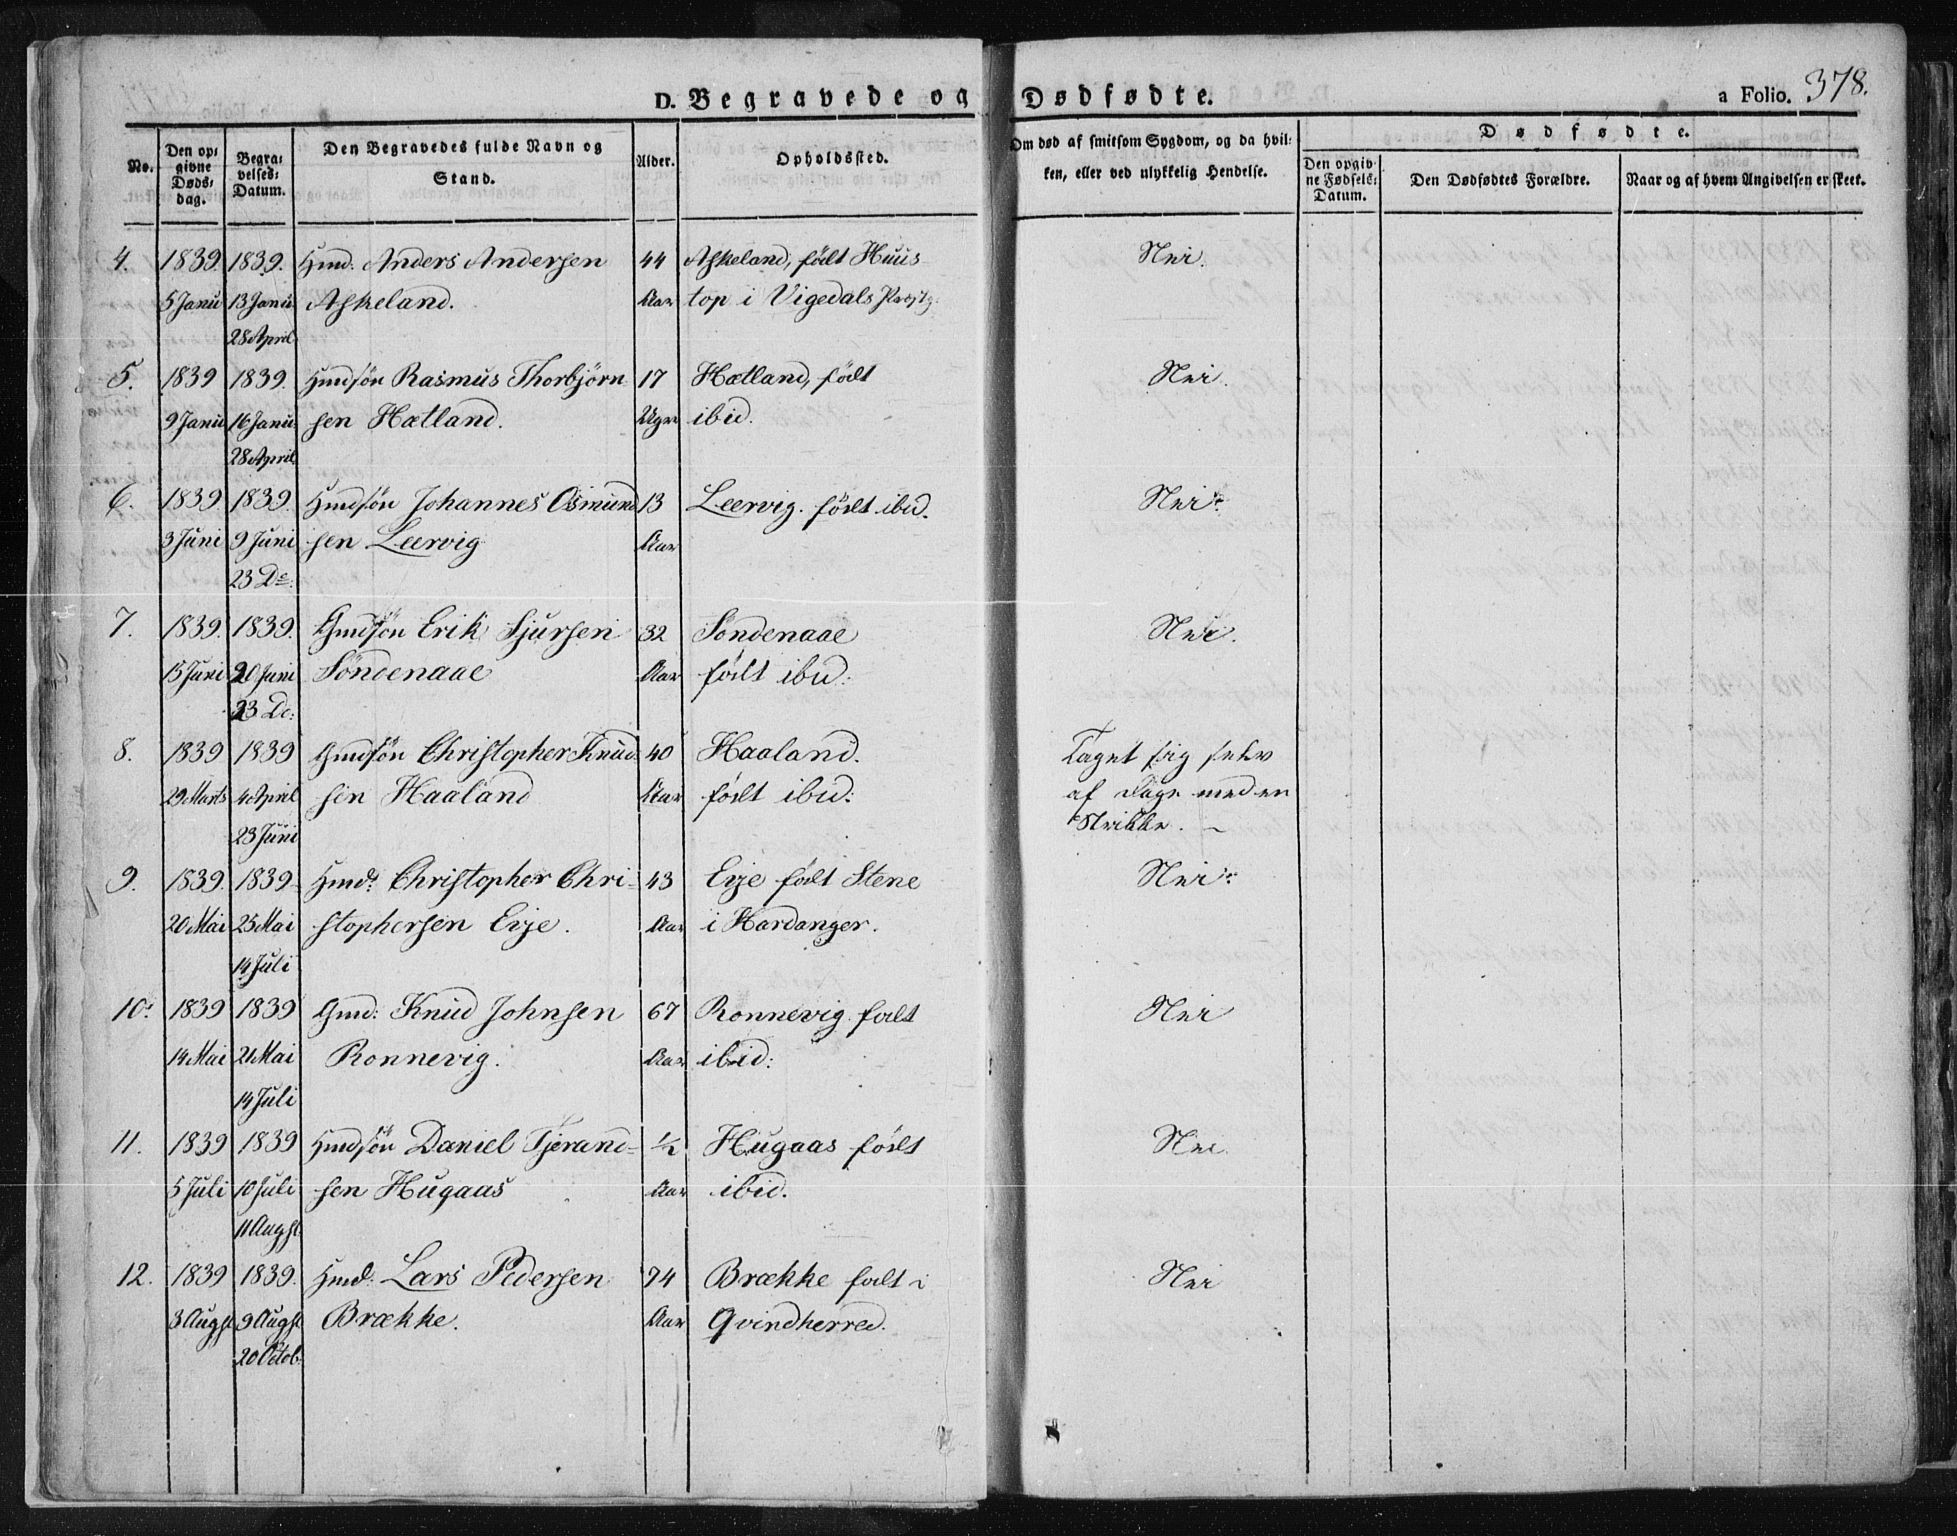 D. Begravede og Dødfødte.
a Folio. 378.
No.
Den op:
givne
Døds:
dag.
Begra:
velses:
Datum.
Den Begravedes fulde Navn og
Stand.
Alder.
Opholdssted.
Om død af smitsom Sygdom, og da hvil:
ken, eller ved ulykkelig Hendelse.
Dødfødte.
Den opgiv:
ne Fødsels:
Datum.
Den Dødfødtes Forældre.
Naar og af hvem Angivelsen er skeet.
4. 1839. 1839. Hmd. Anders Andersen 44 Askeland, født Huus- Nei.
5 Janu 13 Janu Askeland. Aar top i Vigedals Præstg:
28 April
5. 1839 1839. Hmdsøn Rasmus Thorbjørn- 17 Hætland, født Nei.
9 Janu 16 Janu sen Hætland. Uger ibid.
28 April
6. 1839 1839. Hmdsøn Johannes Osmund 13 Leervig. født ibid. Nei.
3 Juni 9 Juni sen Leervig Aar
23 De:
7. 1839. 1839. Gmdsøn Erik Sjursen 32 Søndenaae Nei.
15 Juni 20 Juni Søndenaae Aar født ibid:
23 De:
8. 1839 1839 Gmdsøn Christopher Knud- 40 Haaland. Taget sig selv
29 Marts 4 April sen Haaland Aar født ibid: af Dage med en
23 Juni Strikke. -
9. 1839. 1839- Hmd: Christopher Chri- 43 Eije født Stene Nei.
20 Mai 25 Mai stophersen Eije. Aar i Hardanger.
14 Juli
10. 1839 1839 Gmd: Knud Johnsen 67 Ronnevig. født Nei
14 Mai 21 Mai Ronnevig. Aar ibid:
14 Juli
11. 1839 1839 Hmdsøn Daniel Tjerand- ½ Hugaas født Nei.
5 Juli 10 Juli sen Hugaas Aar ibid.
11 Augst.
12. 1839 1839. Hmd: Lars Pedersen 74 Brække født i Nei
3 Augst 9 Augst Brække. Aar Qvindherred.
20 Octob.